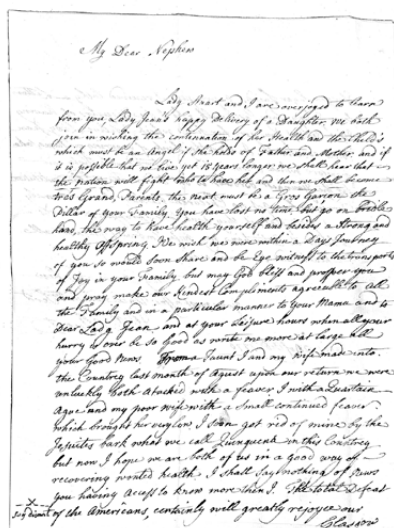 My Dear Nephew
Lady Anart and I are overjoyed to learn
from you, Lady Jean's happy Delivery of a Daughter. We both
join in wishing the continuation of her Health and the Child's
which must be an Angel if she holds of Father and Mother, and if
it is possible that we live yet 18 Years longer we shall hear that
the nation will fight who to have her and then we shall become
Grand Parents, the next must be a Gros Garcon the
Pillar of your Family. You have lost no time, but go on
hand, the way to have health yourself and besides a Strong and
healthy Offspring. We wish we were within a Days Journey
of you so would soon share and be Eye witness to the transports
of Joy in your Family but may God bless and prosper you
and pray make our Kindest Compliments agreeable to All
the Family and in a particular manner to Your Mama and to
Dear Lady Jean and at your Leisure hours when all your
hurry is over be so Good as write me more at large all
your Good News. From a Jaunt I and my Wife made into
the Countrey last month of Agust upon our return we were
unluckly both atacked with a feaver I with a Quartain
Ague and my poor wife with a Small continued feaver.
which brought her very low I soon got rid of mine by the
Jesuites bark what we call Quinquena in this Countrey
but now I hope we are both of us in a good way of
recovering wonted health I shall Say nothing of News
you having Acess to know more then I. The total Defeat
of the Americans, certainly will greatly rejoyce our
Glasgow